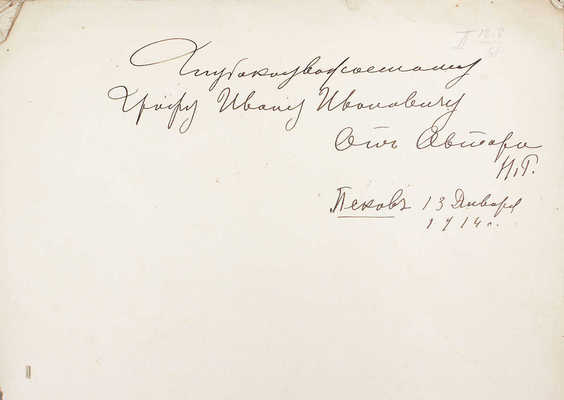 Глубокоуважаемому
Графу Ивану Ивановичу
Отъ Автора
Н.Г.
Псковъ 13 Января
1914 г.